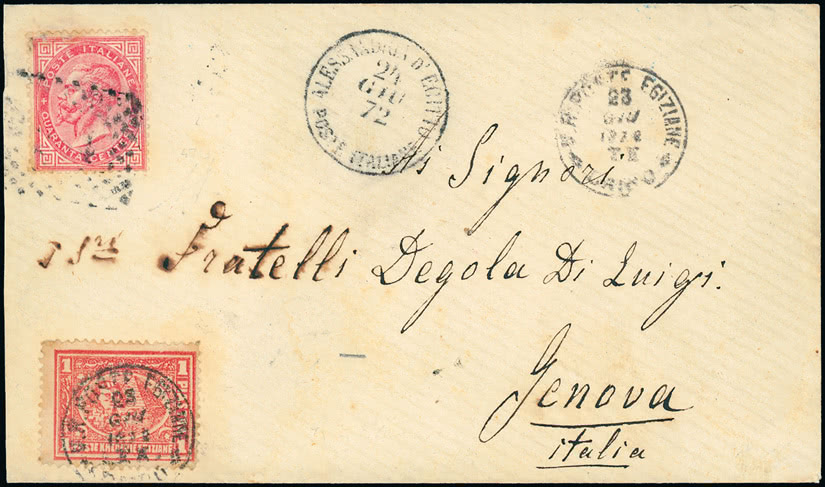 POSTE ITALIANE
QUARANTA CENT
ALESSANDRIA D'EGITTO
24
GIU
72
POSTE ITALIANE
POSTE EGIZIANE
23
GIU
CAIRO
Ai Signori
Fratelli Degola Di Luigi.
Genova
italia
1 1
POSTE KHEDEVIE EGIZIANE
POSTE EGIZIANE
GIU